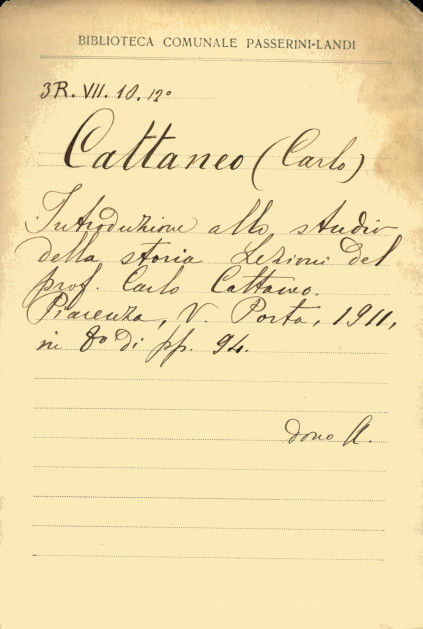 BIBLIOTECA COMUNALE PASSERINI-LANDI
3R. VII. 10. 12°
Cattaneo (Carlo)
Introduzione allo studio
della storia Lezioni del
prof. Carlo Cattaneo.
Piacenza, V. Porta, 1911,
in 8° di pp. 94.
dono A.